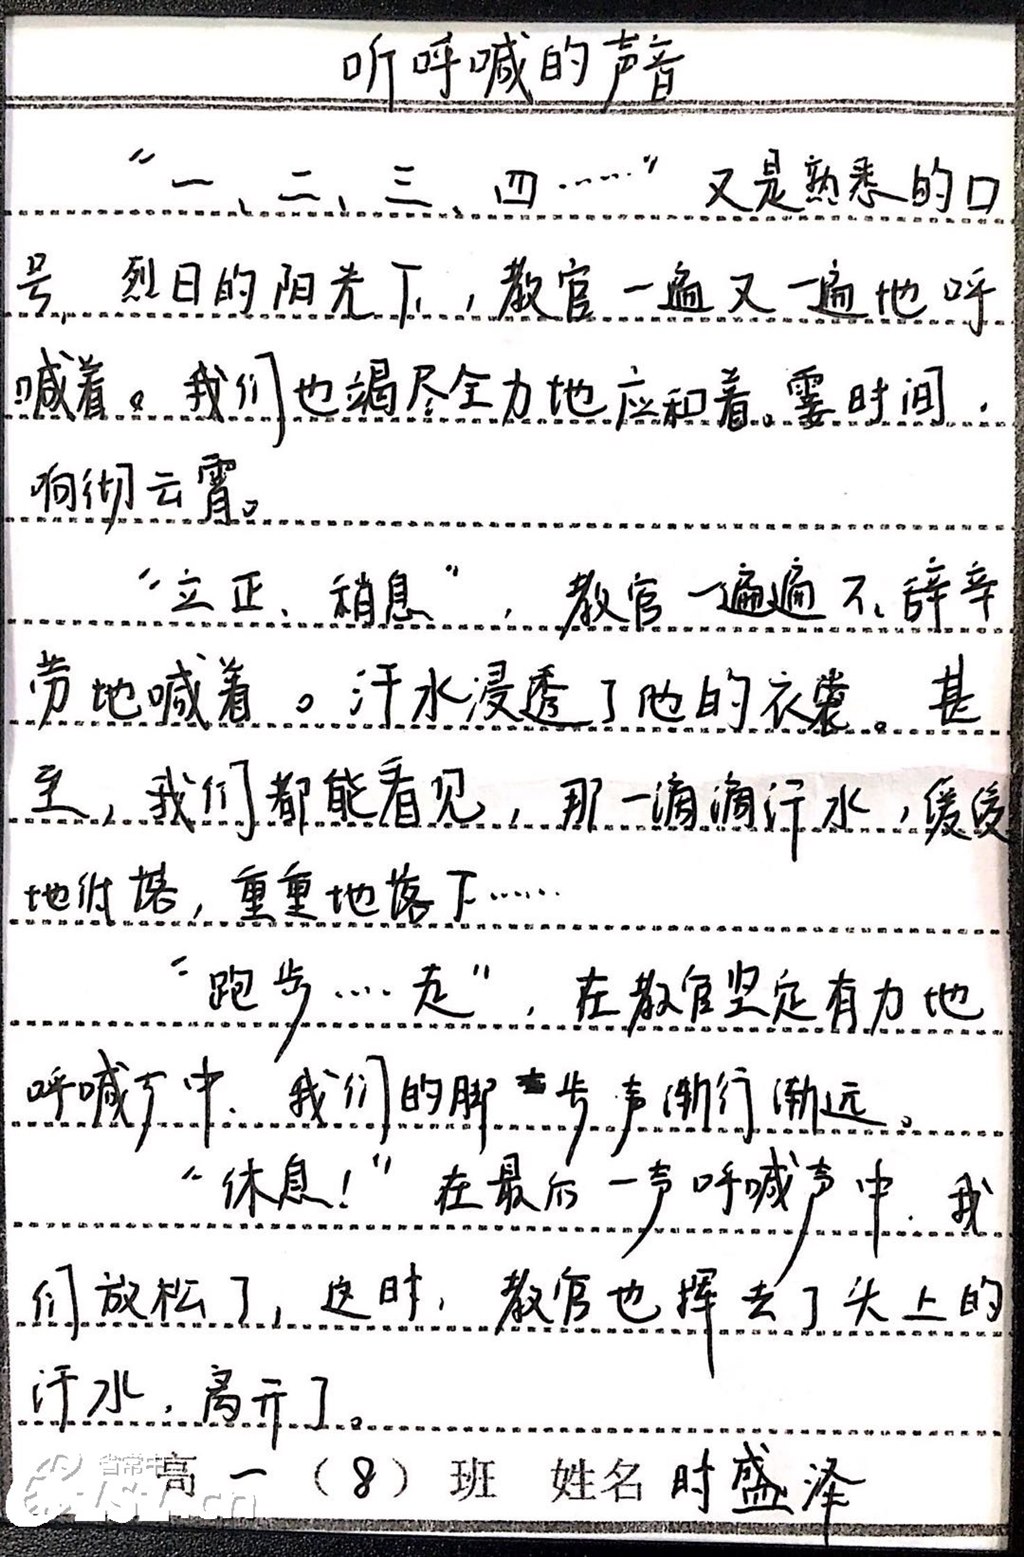 听呼喊的声音
“一、二、三、四……”又是熟悉的口
号,烈日的阳光下,教官一遍又一遍地呼
喊着。我们也竭尽全力地应和着。霎时间,
响彻云霄。
“立正、稍息”,教官一遍遍不辞辛
劳地喊着。汗水浸透了他的衣裳。甚
至,我们都能看见,那一滴滴汗水,缓缓
地,重重地落下……
“跑步……走”,在教官坚定有力地
呼喊声中,我们的脚步声渐行渐远。
“休息!”在最后一声呼喊声中,我
们放松了,这时,教官也挥去了头上的
汗水,离开了。
高一(8)班 姓名 时盛泽
省常中